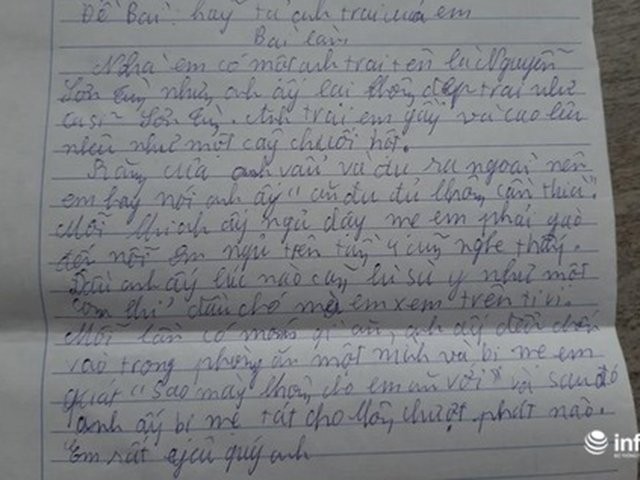 Đề Bài: hãy tả anh trai của em
Bài làm
Nhà em có một anh trai tên là Nguyễn
Sơn Tùng nhưng anh ấy lại không đẹp trai như
ca sĩ Sơn Tùng. Anh trai em gầy và cao lêu
nghêu như một cây chuối hột.
Răng của anh vẩu và đu ra ngoài nên
em hay nói anh ấy "ăn đu đủ không cần thìa".
Mỗi khi anh ấy ngủ dậy mẹ em phải gào
đến nỗi em ngủ trên tầng 4 cũng nghe thấy.
Đầu anh ấy lúc nào cũng bù xù y như một
đầu chó mà em xem trên ti vi.
Mỗi lần có món gì ăn, anh ấy đều
vào trong phòng ăn một mình và bị mẹ em
quát "Sao mày không cho em ăn với" và sau đó
anh ấy bị mẹ tát cho không chượt phát nào.
Em rất quý anh
inf